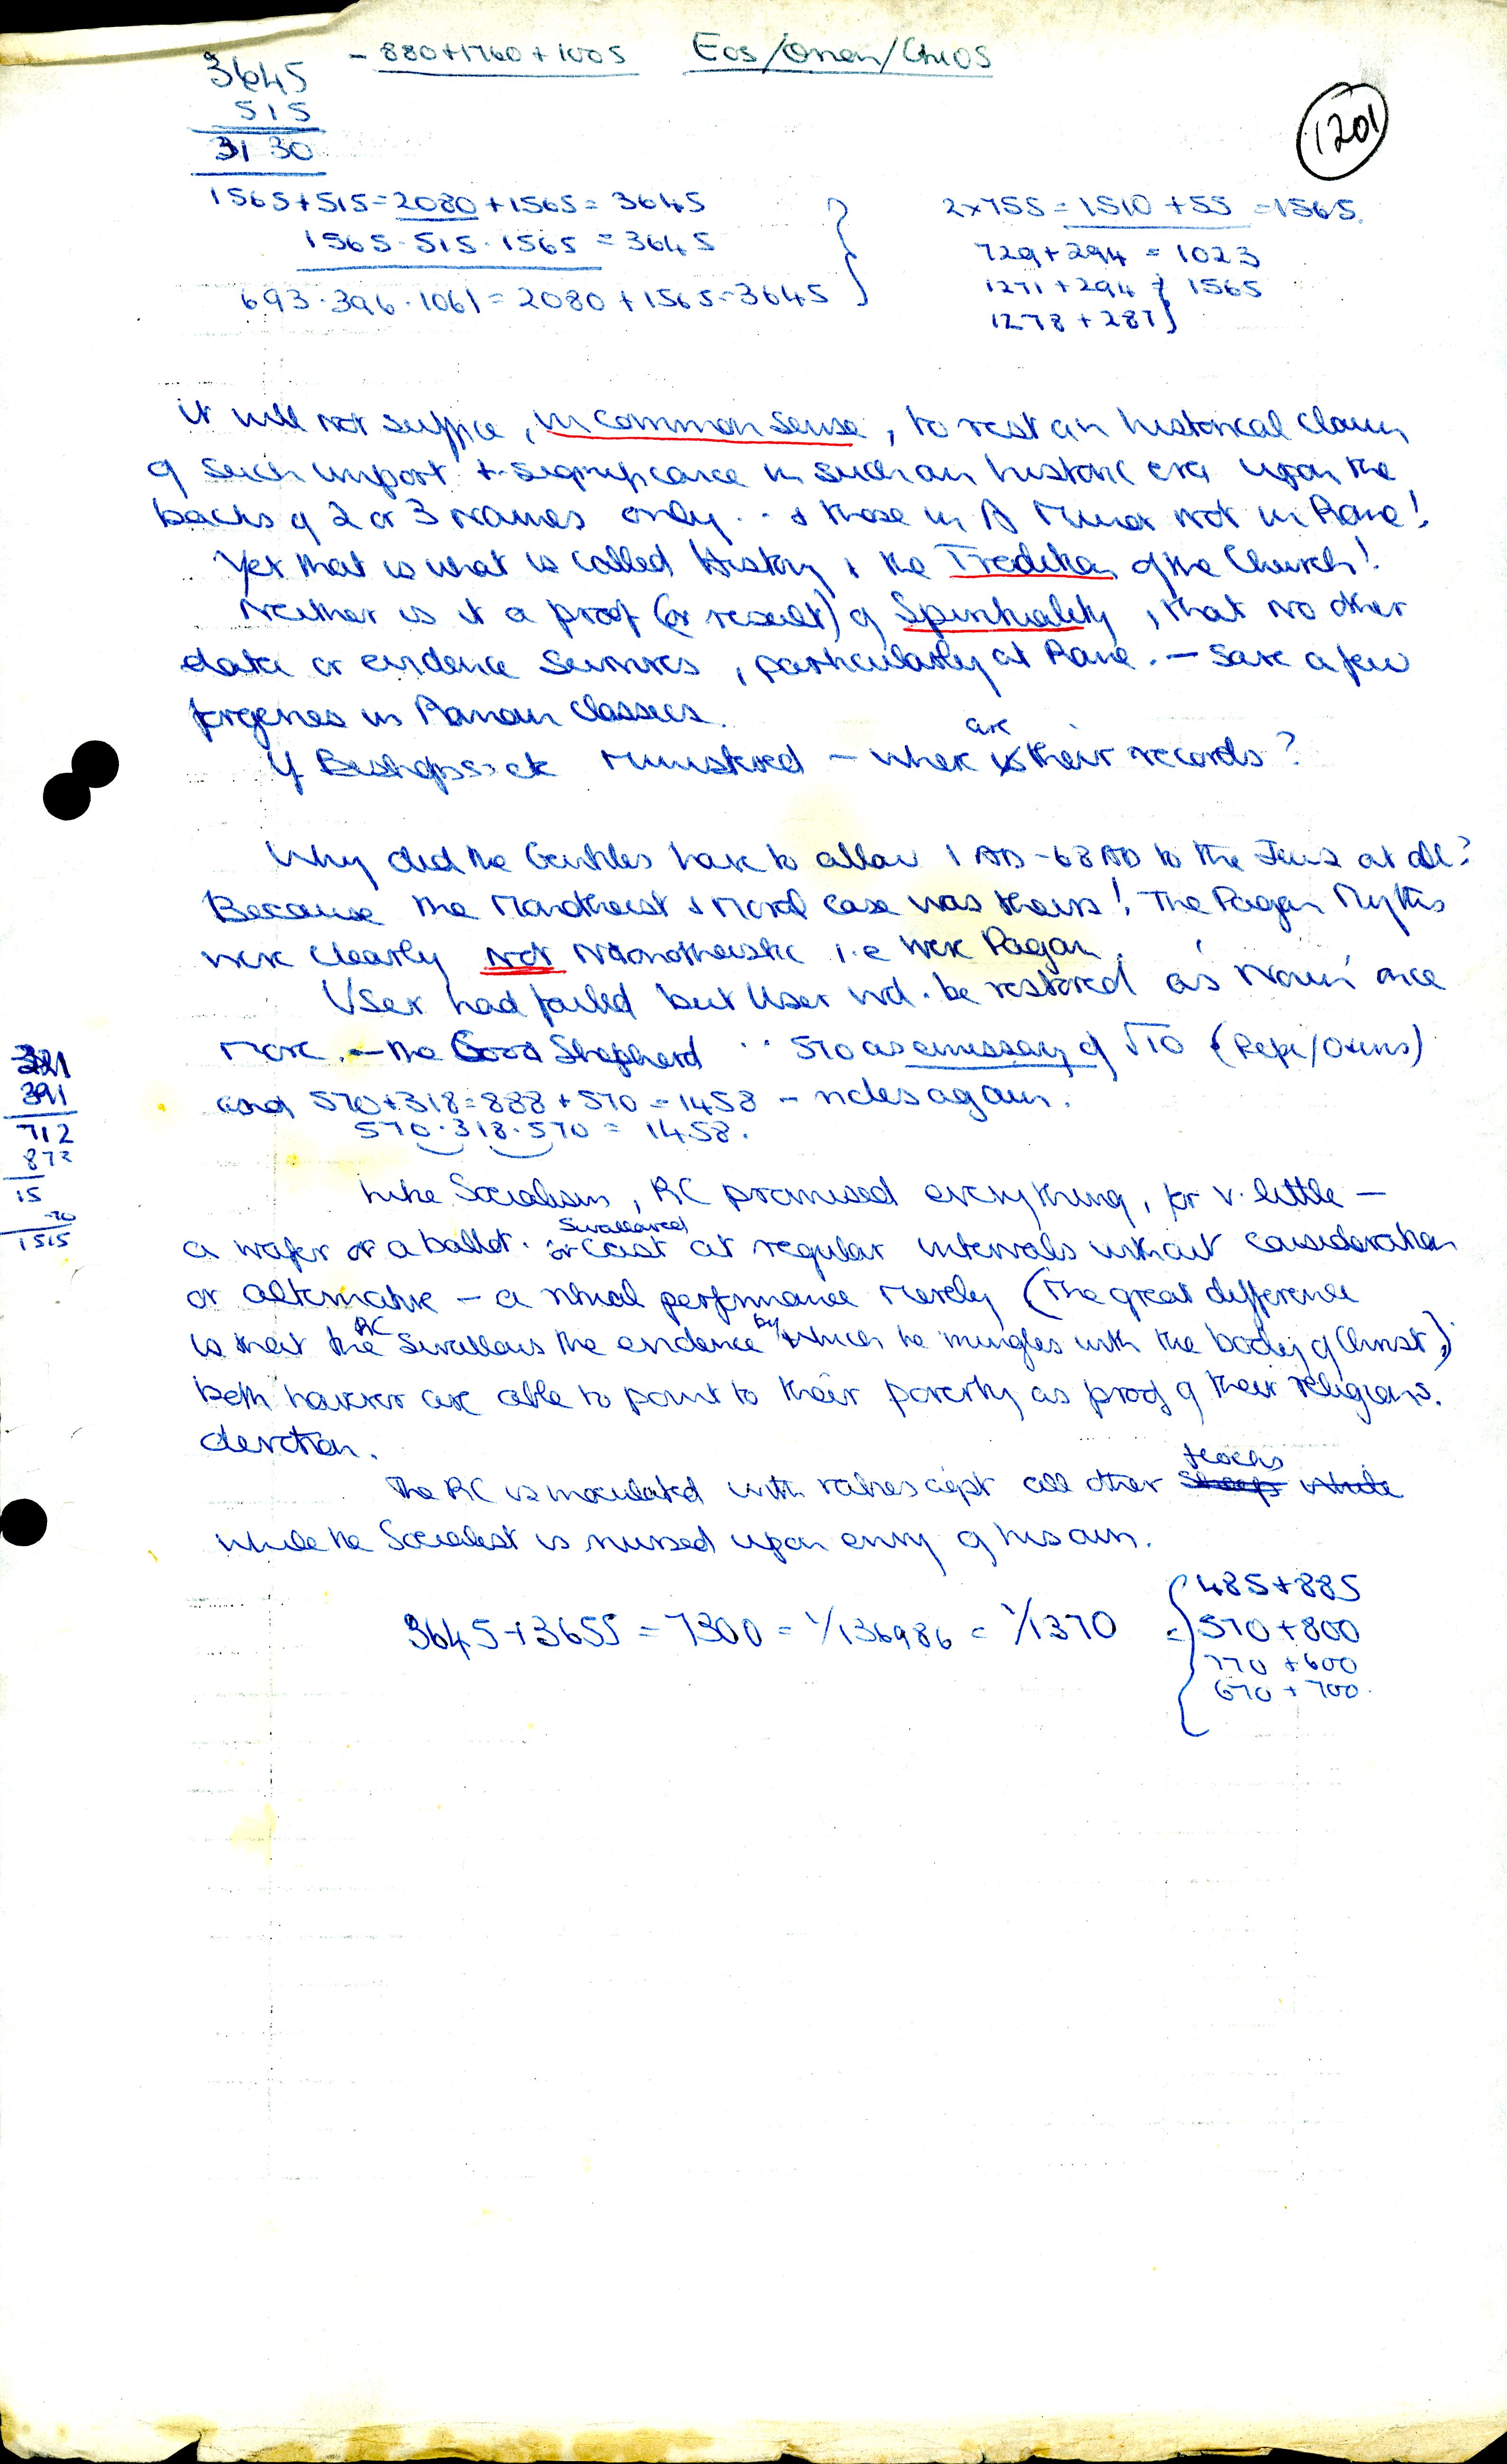 3645 - 880+1760+1005 Eos/Orion/Chios
515
3130
1201
1565+515=2080+1565=3645
1565.515.1565=3645
693.396.1061=2080+1565=3645
2x755=1510+55=1565.
729+294=1023
1271+294 } 1565
1278+287
it will not suffice, in common sense, to rest an historical claim
of such import + significance in such an historic era upon the
backs of 2 or 3 names only.. & those in A Minor not in Rome!
Yet that is what is called History & the Tradition of the Church!
Neither is it a proof (or result) of Spirituality, that no other
data or evidence survives, particularly at Rome. - save a few
forgeries in Roman Classics.
If Bishops etc ministered - where are their records?
Why did the Gentiles have to allow 1 AD-68 AD to the Jews at all?
Because the Monotheist & Moral case was theirs! The Pagan Myths
were clearly not Monotheistic i.e were Pagan.
User had failed but User wd. be restored as 'Noun' once
more. - the Good Shepherd ∵ 570 as emissary of √10 (Repi/Oxens)
and 570+318=888+570=1458 - rides again.
570.318.570=1458.
321
391
712
872
15
1515
Like Socialism, RC promised everything, for v. little -
a wafer or a ballot. swallowed or cast at regular intervals without consideration
or alternative - a ritual performance merely (The great difference
is that the RC swallows the evidence by which he mingles with the body of Christ,)
both however are able to point to their poverty as proof of their religious.
devotion.
The RC is inoculated with rabies agst all other flocks sheep while
while the Socialist is nursed upon envy of his own.
3645+3655=7300=1/136986=1/1370 = { 485+885
570+800
770+600
670+700